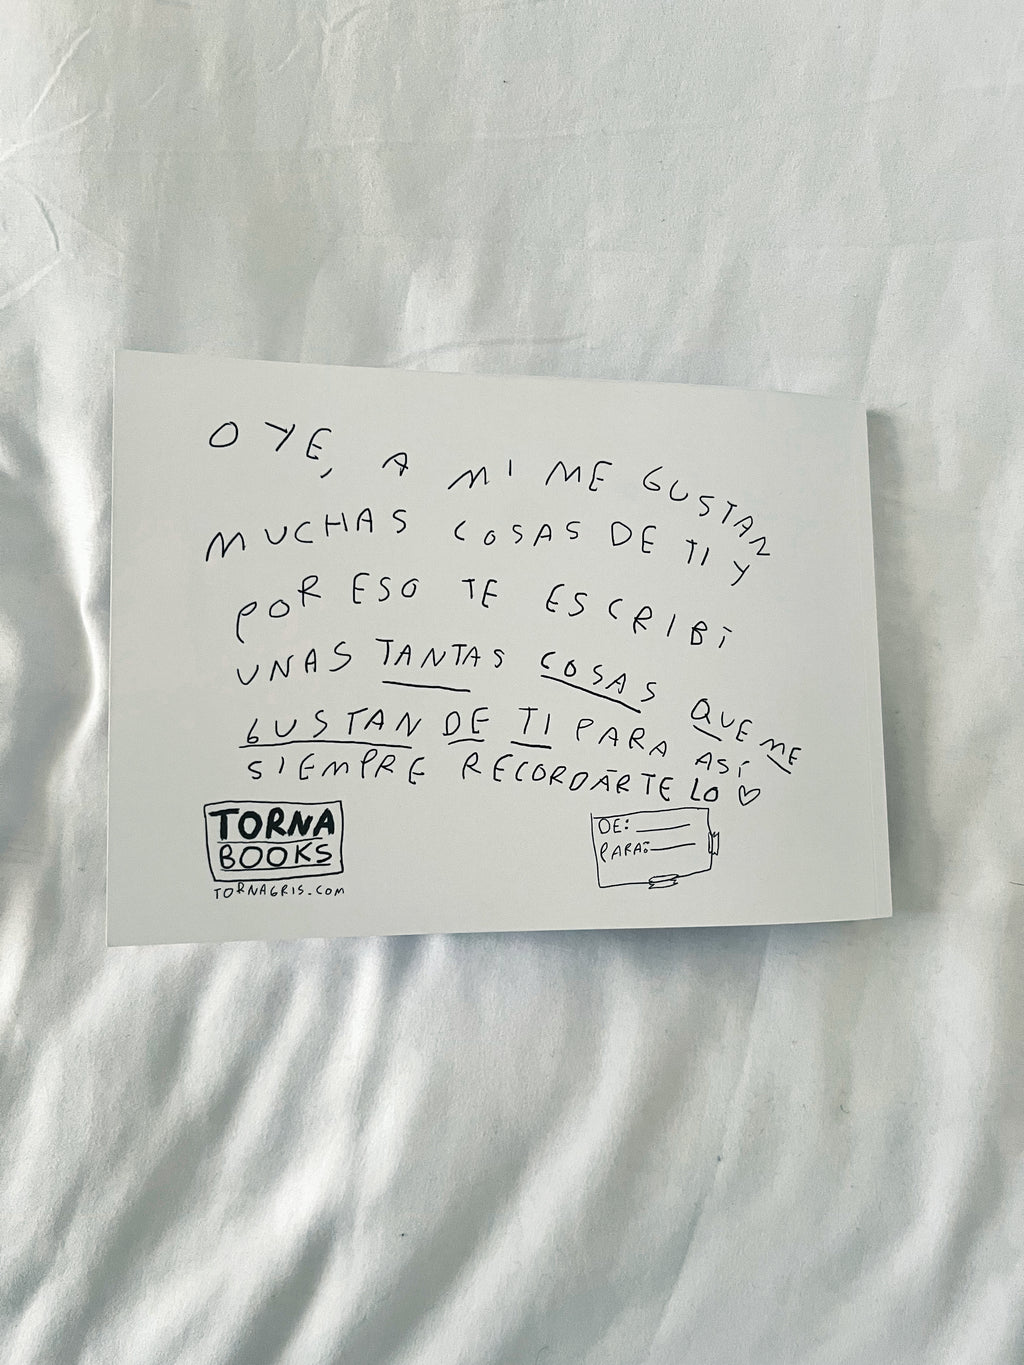 OYE, A MI ME GUSTAN
MUCHAS COSAS DE TI Y
POR ESO TE ESCRIBÍ
UNAS TANTAS COSAS QUE ME
GUSTAN DE TI PARA ASÍ
SIEMPRE RECORDÁRTE LO ♡
TORNA
BOOKS
TORNAGRIS.COM
DE: ____
PARA: ____